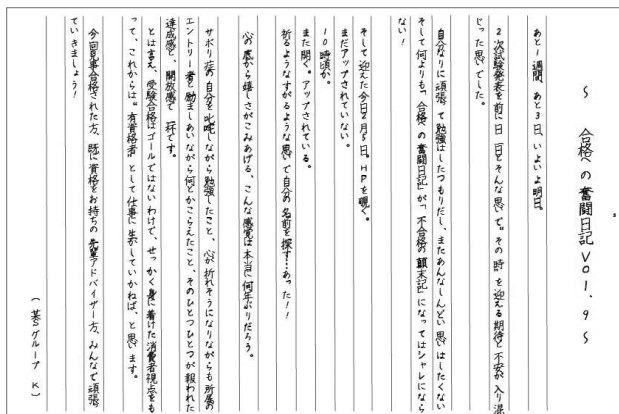 ～　合格への奮闘日記　VOl.９～
あと１週間、あと３日、いよいよ明日。
２次試験発表を前に日一日とそんな思いで“その時”を迎える期待と不安が入り混
じった思いでした。
自分なりに頑張って勉強はしたつもりだし、またあんなしんどい思いはしたくない
そして何よりも「合格への奮闘日記」が「不合格の顛末記」になってはシャレになら
ない！
そして迎えた今日２月５日。ＨＰを覗く。
まだアップされていない。
１０時頃か。
また開く。アップされている。
祈るようなすがるような思いで自分の名前を探す…あった！！
心の底から嬉しさがこみあげる、こんな感覚は本当に何年ぶりだろう。
サボリ症の自分を叱咤しながら勉強したこと、心が折れそうになりながらも所属の
エントリー者と励ましあいながら何とかこらえたこと、そのひとつひとつが報われた
達成感と、開放感で一杯です。
とは言え、受験合格はゴールではないわけで、せっかく身に着けた消費者視点をも
って、これからは“有資格者”として仕事に生かしていかねば、と思います。
今回見事合格された方、既に資格をお持ちの先輩アドバイザー方、みんなで頑張っ
ていきましょう！
（某Ｓグループ　Ｋ）